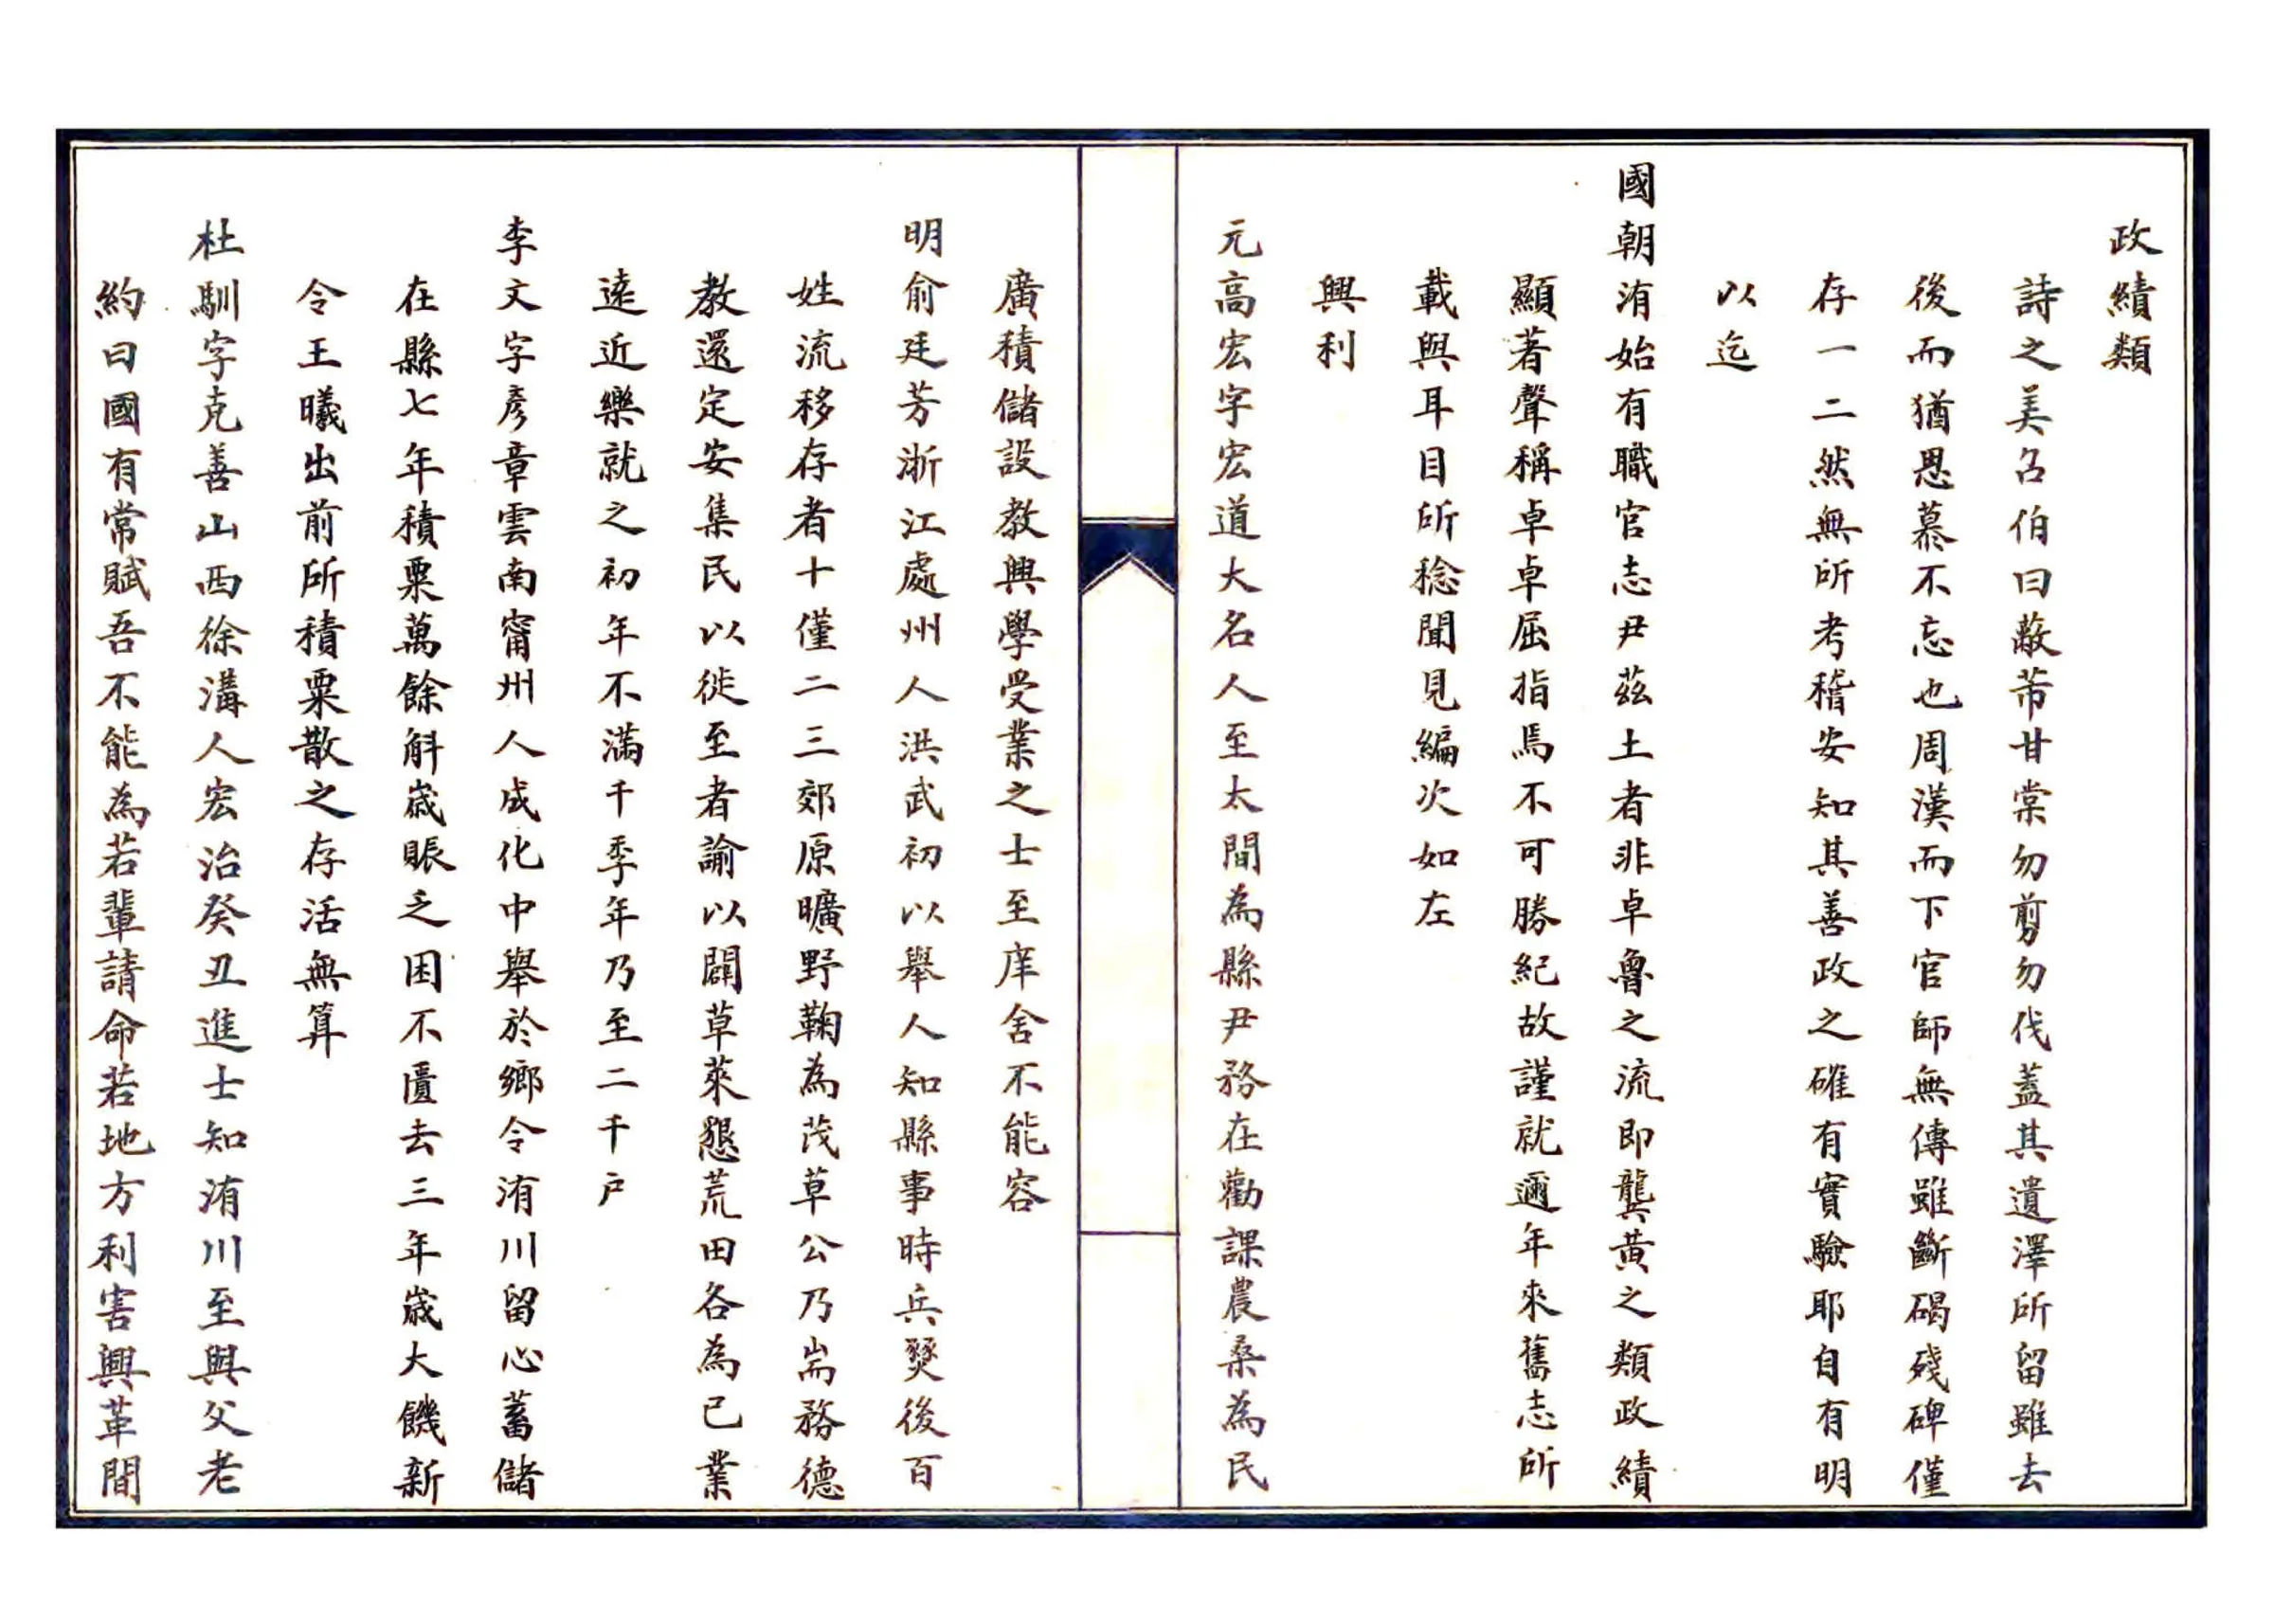 政績類
詩之美召伯曰蔽芾甘棠勿剪勿伐蓋其遺澤所留雖去
後而猶思慕不忘也周漢而下官師無傳雖斷碣殘碑僅
存一二然無所考稽安知其善政之確有實驗耶自有明
以迄
國朝洧始有職官志尹茲土者非卓魯之流即龔黃之類政績
顯著聲稱卓卓屈指焉不可勝紀故謹就邇年來舊志所
載與耳目所稔聞見編次如左
興利
元高宏字宏道大名人至太間為縣尹務在勸課農桑為民
廣積儲設教興學受業之士至庠舍不能容
明俞廷芳浙江處州人洪武初以舉人知縣事時兵燹後百
姓流移存者十僅二三郊原曠野鞠為茂草公乃耑務德
教還定安集民以徙至者諭以闢草萊懇荒田各為已業
遠近樂就之初年不滿千季年乃至二千戶
李文字彥章雲南甯州人成化中舉於鄉令洧川留心蓄儲
在縣七年積粟萬餘斛歲賑乏困不匱去三年歲大饑新
令王曦出前所積粟散之存活無算
杜馴字克善山西徐溝人宏治癸丑進士知洧川至與父老
約曰國有常賦吾不能為若輩請命若地方利害興革間